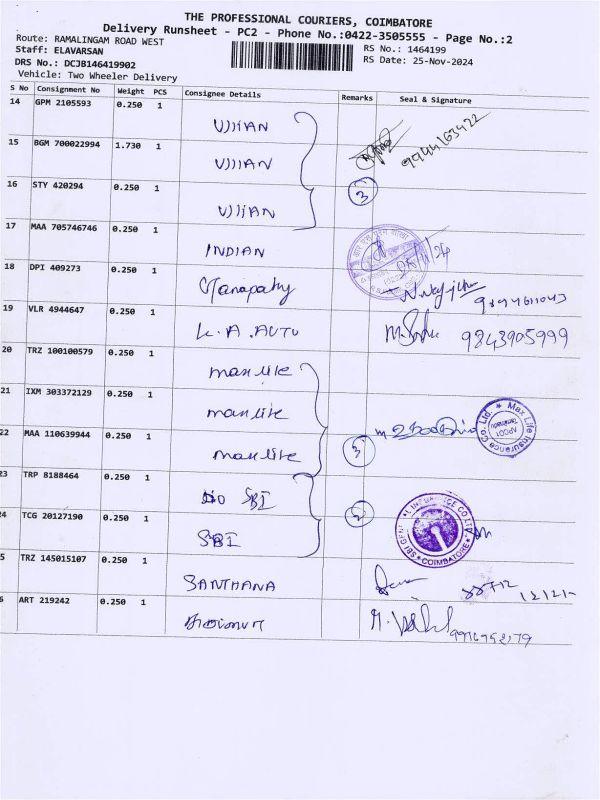 THE PROFESSIONAL COURIERS, COIMBATORE
Delivery Runsheet - PC2 - Phone No.:0422-3505555 - Page No.:2
Route: RAMALINGAM ROAD WEST
RS No.: 1464199
Staff: ELAVARSAN
RS Date: 25-Nov-2024
DRS No.: DCJB146419902
Vehicle: Two Wheeler Delivery
S No Consignment No Weight PCS Consignee Details Remarks Seal & Signature
14 GPM 2105593 0.250 1
UJJIAN
15 BGM 700022994 1.730 1
UJJIAN
9944163422
16 STY 420294 0.250 1
3
UJJIAN
17 MAA 705746746 0.250 1
INDIAN
18 DPI 409273 0.250 1
Ganapathy
19 VLR 4944647 0.250 1
K.A.AUTO
9843905999
20 TRZ 100100579 0.250 1
max life
21 IXM 303372129 0.250 1
max life
Max Life Insurance Co. Ltd. *
22 MAA 110639944 0.250 1
max life
3
23 TRP 8188464 0.250 1
SBI
24 TCG 20127190 0.250 1
2
SBI
SBI GENERAL INSURANCE CO.LTD.
* COIMBATORE *
5 TRZ 145015107 0.250 1
SANTHANA
6 ART 219242 0.250 1